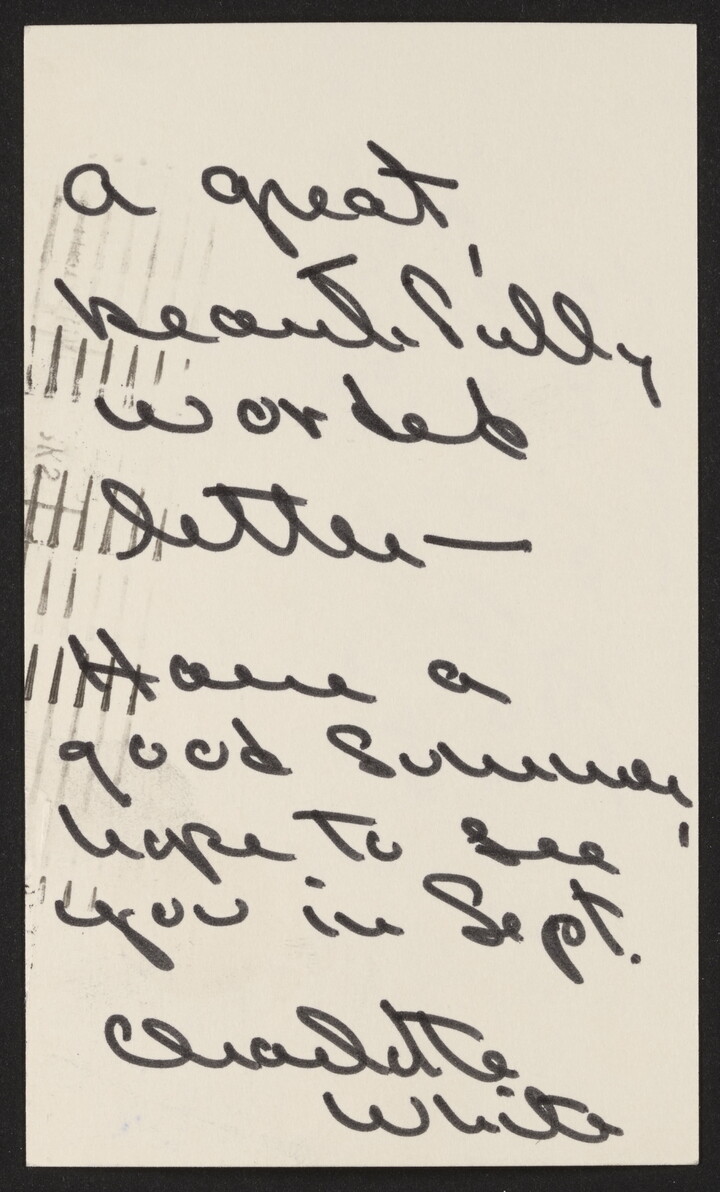 a great
beautifully
worded
letter—
Have a
good Summer!
hope to see
you in Sept.
Charlotte
White